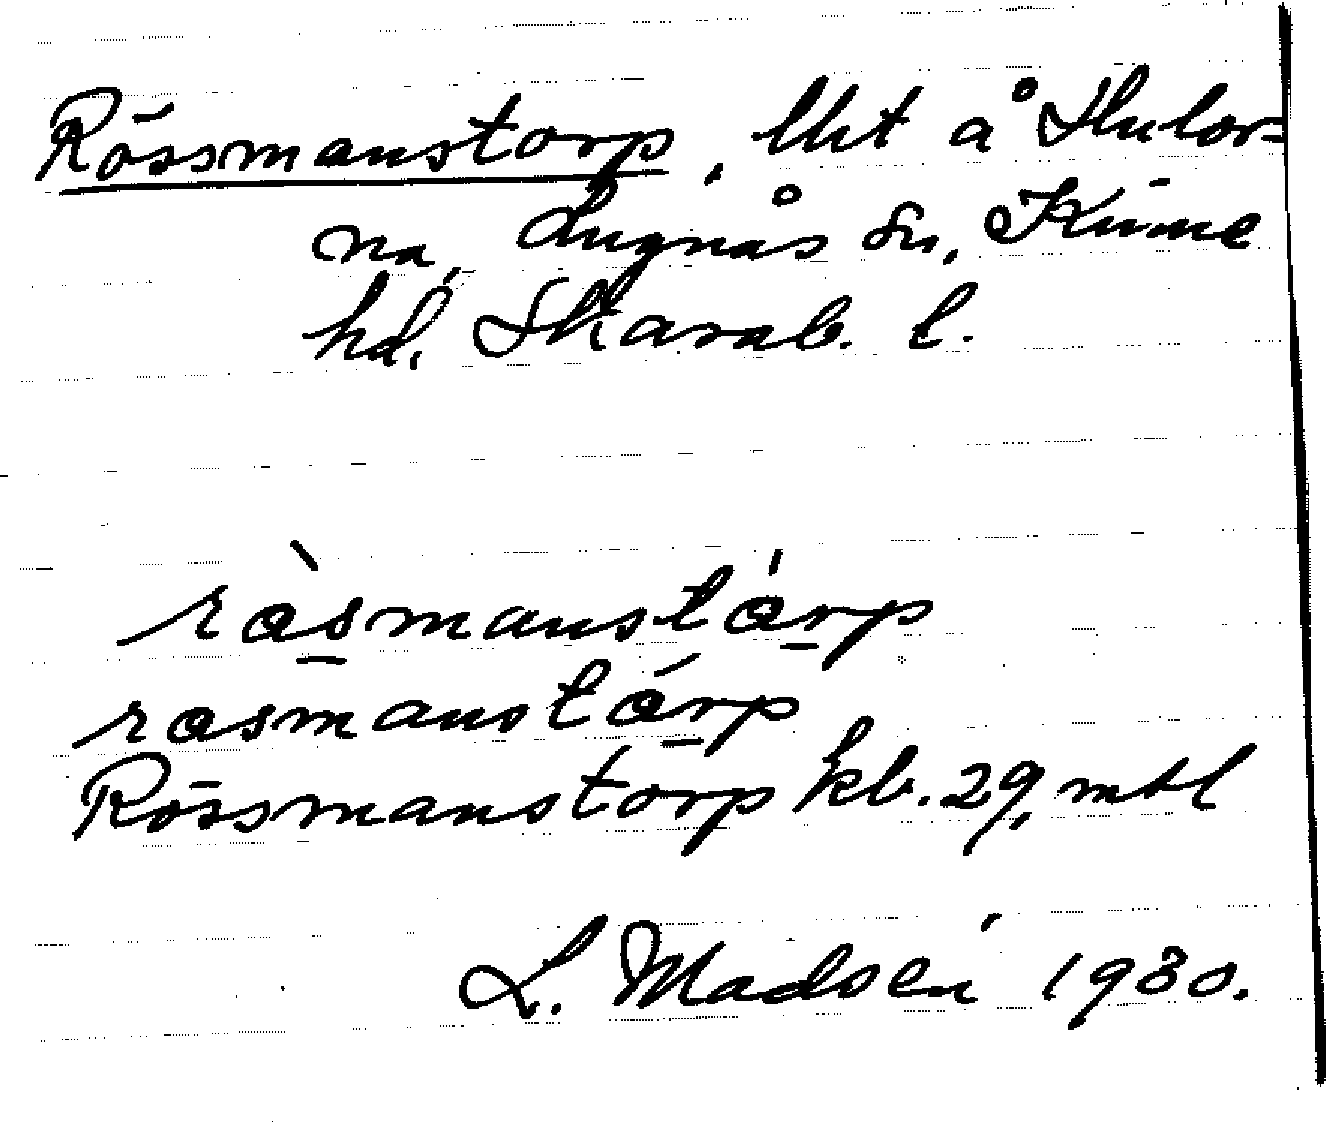 Rössmanstorp, lht å Stulor-
na, Lugnås sn, Kinne
hd, Skarab. l.
ràsmanstárp
rasmanstárp
Rössmanstorp kb. 29, mtl
L. Madsén 1930.